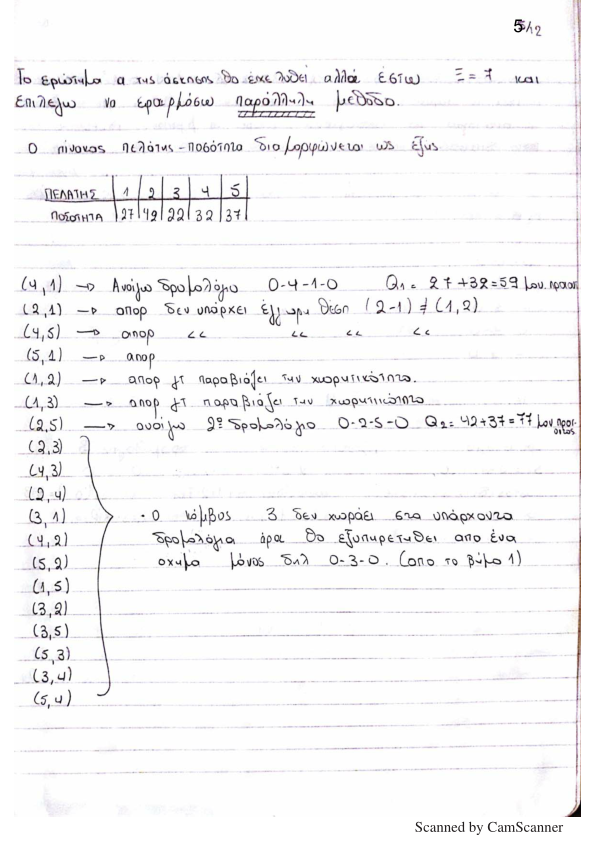 5/12
Το ερώτημα α της άσκησης θα έχει λυθεί αλλά έστω Ξ = 7 και
επιλέγω να εφαρμόσω παράλληλη μέθοδο.
Ο πίνακας πελάτης - ποσότητα διαμορφώνεται ως εξής
ΠΕΛΑΤΗΣ | 1 | 2 | 3 | 4 | 5
ΠΟΣΟΤΗΤΑ | 27 | 42 | 22 | 32 | 37
(4,1) → Ανοίγω δρομολόγιο 0-4-1-0 Q1 = 27+32=59 μον. προϊοντ
(2,1) → απορ δεν υπάρχει έγκυρη θέση (2-1) ≠ (1,2)
(4,5) → απορ << << << <<
(5,1) → απορ
(1,2) → απορ γτ παραβιάζει την χωρητικότητα.
(1,3) → απορ γτ παραβιάζει την χωρητικότητα
(2,5) → ανοίγω 2ο δρομολόγιο 0-2-5-0 Q2= 42+37=77 μον προϊ-
οντος
(2,3)
(4,3)
(2,4)
(3,1) • Ο κόμβος 3 δεν χωράει στα υπάρχοντα
(4,2) δρομολόγια άρα θα εξυπηρετηθεί απο ένα
(5,2) όχημα μόνος δηλ 0-3-0. (απο το βήμα 1)
(1,5)
(3,2)
(3,5)
(5,3)
(3,4)
(5,4)
Scanned by CamScanner